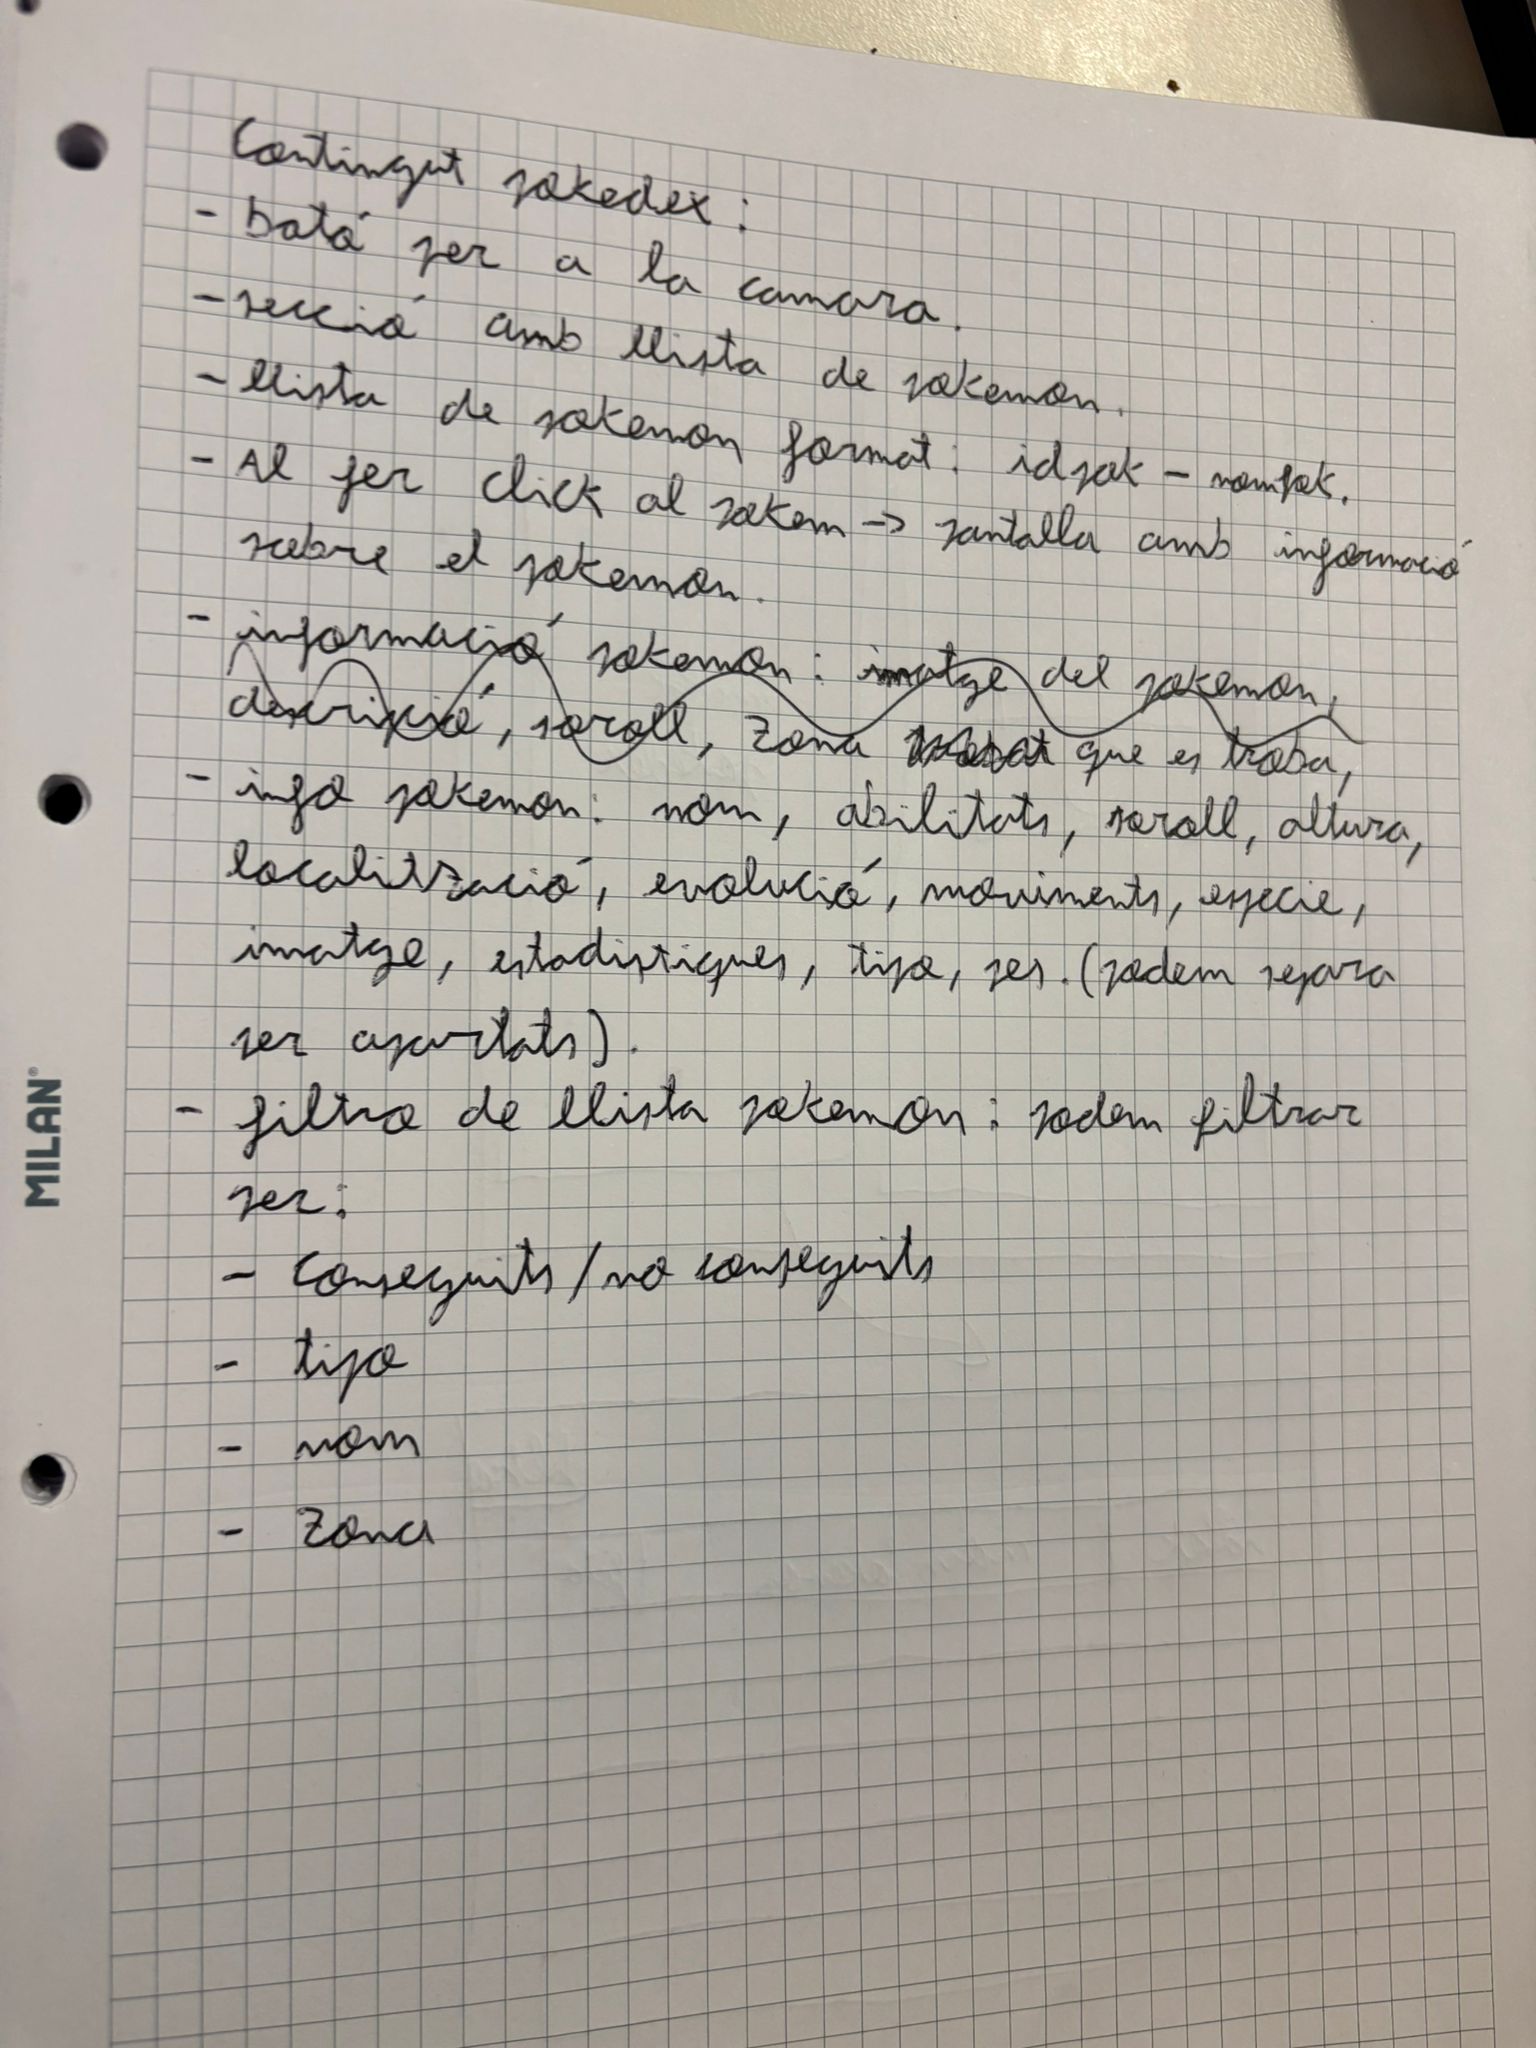 Contingut pokedex:
- botó per a la camara.
- secció amb llista de pokemon.
- llista de pokemon format: idpok - nompok.
- Al fer click al pokem -> pantalla amb informació
sobre el pokemon.
- informació pokemon: imatge del pokemon,
descripció, soroll, zona que es troba,
- info pokemon: nom, abilitats, soroll, altura,
localització, evolució, moviments, especie,
imatge, estadistiques, tipo, pes. (podem separa
per apartats).
- filtro de llista pokemon: podem filtrar
per:
- Conseguits / no conseguits
- tipo
- nom
- Zona
MILAN®